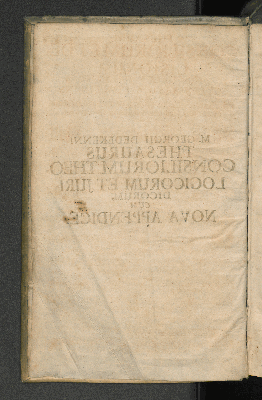 M. GEORGII DEDEKENNI
THESAURUS
CONSILIORUM THEO
LOGICORUM ET JURI
DICORUM,
CUM
NOVA APPENDICE.